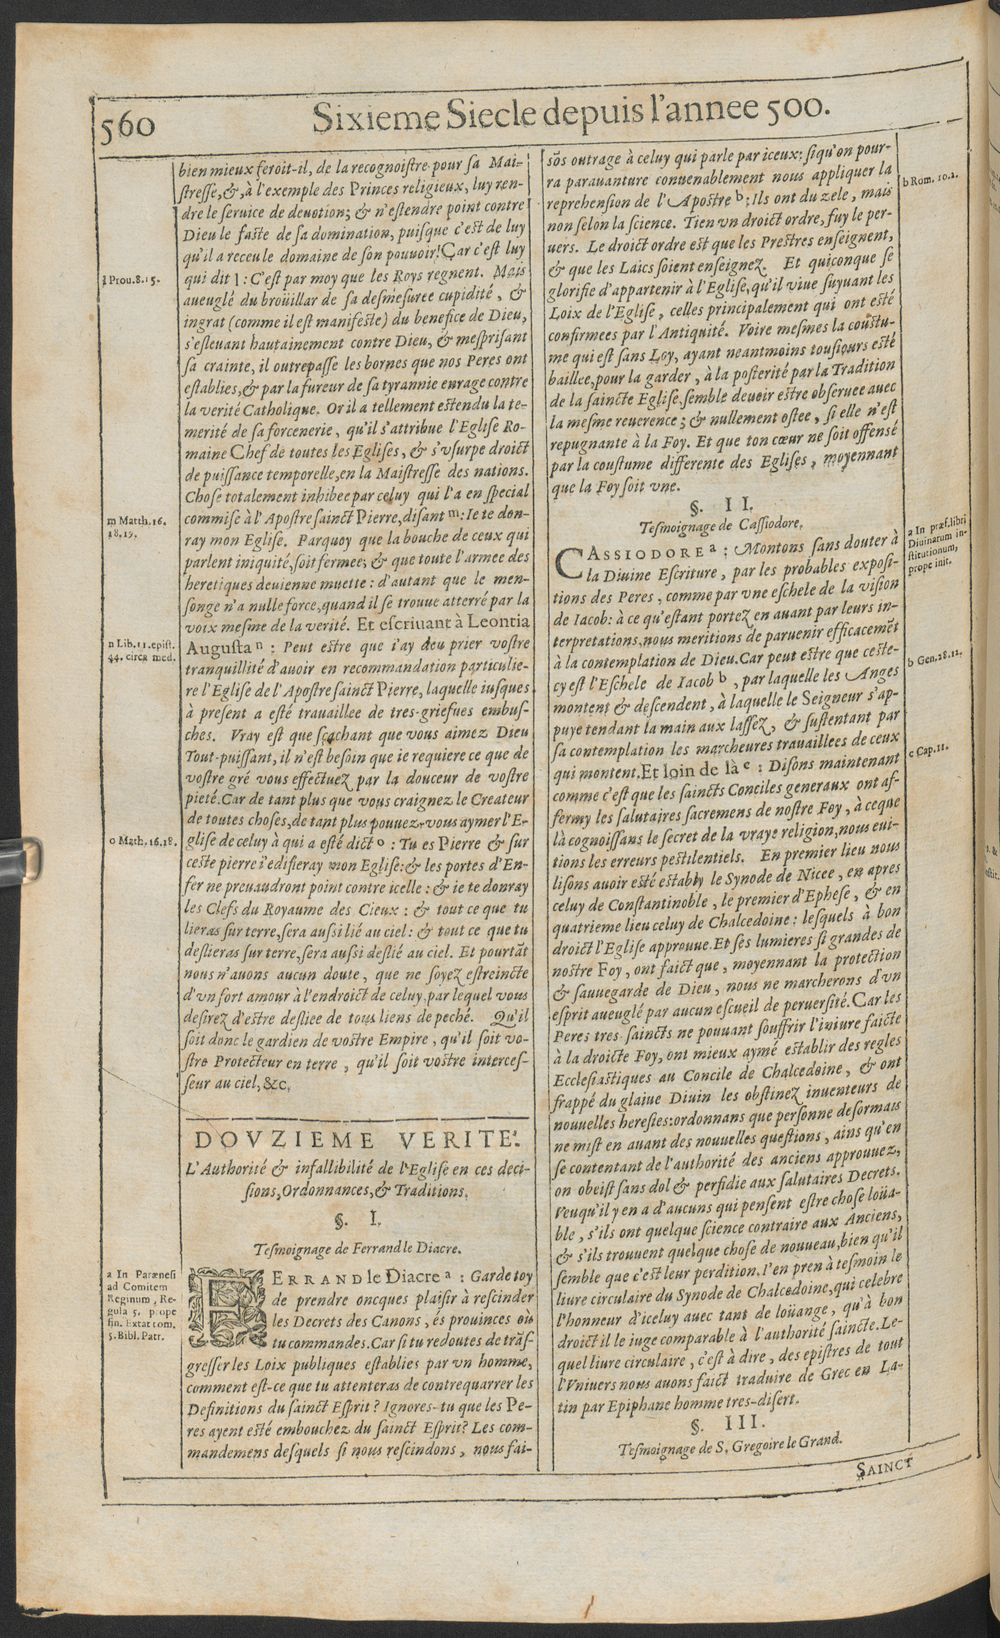 560
Sixieme Siecle depuis l'annee 500.
bien mieux feroit-il, de la recognoiſtre pour ſa Mai-
ſtreſſe, &, à l'exemple des Princes religieux, luy ren-
dre le ſeruice de deuotion; & n'eſtendre point contre
Dieu le faſte de ſa domination, puiſque c'eſt de luy
qu'il a receu le domaine de ſon pouuoir! Car c'eſt luy
qui dit l : C'eſt par moy que les Roys regnent. Mais
aueuglé du broüillar de ſa deſmeſuree cupidité, &
ingrat (comme il eſt manifeſte) du benefice de Dieu,
s'eſleuant hautainement contre Dieu, & meſpriſant
ſa crainte, il outrepaſſe les bornes que nos Peres ont
eſtablies, & par la fureur de ſa tyrannie enrage contre
la verité Catholique. Or il a tellement eſtendu la te-
merité de ſa forcenerie, qu'il s'attribue l'Egliſe Ro-
maine Chef de toutes les Egliſes, & s'vſurpe droict
de puiſſance temporelle, en la Maiſtreſſe des nations.
Choſe totalement inhibee par celuy qui l'a en ſpecial
commiſe à l'Apoſtre ſainct Pierre, diſant m: Ie te don-
ray mon Egliſe. Parquoy que la bouche de ceux qui
parlent iniquité, ſoit fermee; & que toute l'armee des
heretiques deuienne muette : d'autant que le men-
ſonge n'a nulle force, quand il ſe trouue atterré par la
voix meſme de la verité. Et eſcriuant à Leontia
Auguſta n : Peut eſtre que i'ay deu prier voſtre
tranquillité d'auoir en recommandation particulie-
re l'Egliſe de l'Apoſtre ſainct Pierre, laquelle iuſques
à preſent a eſté trauaillee de tres-griefues embuſ-
ches. Vray eſt que ſçachant que vous aimez Dieu
Tout-puiſſant, il n'eſt beſoin que ie requiere ce que de
voſtre gré vous effectuez par la douceur de voſtre
pieté. Car de tant plus que vous craignez le Createur
de toutes choſes, de tant plus pouuez-vous aymer l'E-
gliſe de celuy à qui a eſté dict o : Tu es Pierre & ſur
ceſte pierre i'edifieray mon Egliſe: & les portes d'En-
fer ne preuaudront point contre icelle : & ie te donray
les Clefs du Royaume des Cieux : & tout ce que tu
lieras ſur terre, ſera auſsi lié au ciel: & tout ce que tu
deſlieras ſur terre, ſera auſsi deſlié au ciel. Et pourtāt
nous n'auons aucun doute, que ne ſoyez eſtreincte
d'vn fort amour à l'endroict de celuy par lequel vous
deſirez d'eſtre deſliee de tous liens de peché. Qu'il
ſoit donc le gardien de voſtre Empire, qu'il ſoit vo-
ſtre Protecteur en terre, qu'il ſoit voſtre interceſ-
ſeur au ciel, &c.
l Prou.8.15.
m Matth.16.
18.19.
n Lib.11.epiſt.
44. circa med.
o Math.16.18.
DOVZIEME VERITE'.
L'Authorité & infallibilité de l'Egliſe en ces deci-
ſions, Ordonnances, & Traditions.
§. I.
Teſmoignage de Ferrand le Diacre.
FERRAND le Diacre a : Garde toy
de prendre oncques plaiſir à reſcinder
les Decrets des Canons, és prouinces où
tu commandes. Car ſi tu redoutes de trāſ-
greſſer les Loix publiques eſtablies par vn homme,
comment eſt-ce que tu attenteras de contrequarrer les
Definitions du ſainct Eſprit? Ignores-tu que les Pe-
res ayent eſté embouchez du ſainct Eſprit? Les com-
mandemens deſquels ſi nous reſcindons, nous fai-
a In Parænesi
ad Comitem
Reginum, Re-
gula 5. prope
fin. Extat tom.
5. Bibl. Patr.
sōs outrage à celuy qui parle par iceux: ſi qu'on pour-
ra parauanture conuenablement nous appliquer la
reprehenſion de l'Apoſtre b: Ils ont du zele, mais
non ſelon la ſcience. Tien vn droict ordre, fuy le per-
uers. Le droict ordre eſt que les Preſtres enſeignent,
& que les Laics ſoient enſeignez. Et quiconque ſe
glorifie d'appartenir à l'Egliſe, qu'il viue ſuyuant les
Loix de l'Egliſe, celles principalement qui ont eſté
confirmees par l'Antiquité. Voire meſmes la couſtu-
me qui eſt ſans Loy, ayant neantmoins touſiours eſté
baillee, pour la garder, à la poſterité par la Tradition
de la ſaincte Egliſe, ſemble deuoir eſtre obſeruee auec
la meſme reuerence; & nullement oſtee, ſi elle n'eſt
repugnante à la Foy. Et que ton cœur ne ſoit offensé
par la couſtume differente des Egliſes, moyennant
que la Foy ſoit vne.
b Rom. 10.2.
§. II.
Teſmoignage de Caſſiodore.
CASSIODORE a : Montons ſans douter à
la Diuine Eſcriture, par les probables expoſi-
tions des Peres, comme par vne eſchele de la viſion
de Iacob: à ce qu'eſtant portez en auant par leurs in-
terpretations, nous meritions de paruenir efficacemēt
à la contemplation de Dieu. Car peut eſtre que ceſte-
cy eſt l'Eſchele de Iacob b, par laquelle les Anges
montent & deſcendent, à laquelle le Seigneur s'ap-
puye tendant la main aux laſſez, & ſuſtentant par
ſa contemplation les marcheures trauaillees de ceux
qui montent. Et loin de là c : Diſons maintenant
comme c'eſt que les ſaincts Conciles generaux ont aſ-
fermy les ſalutaires ſacremens de noſtre Foy, à ce que
là cognoiſſans le ſecret de la vraye religion, nous eui-
tions les erreurs peſtilentiels. En premier lieu nous
liſons auoir eſté eſtably le Synode de Nicee, en apres
celuy de Conſtantinoble, le premier d'Epheſe, & en
quatrieme lieu celuy de Chalcedoine: leſquels à bon
droict l'Egliſe approuue. Et ſes lumieres ſi grandes de
noſtre Foy, ont faict que, moyennant la protection
& ſauuegarde de Dieu, nous ne marcherons d'vn
eſprit aueuglé par aucun eſcueil de peruerſité. Car les
Peres tres-ſaincts ne pouuant ſouffrir l'iniure faicte
à la droicte Foy, ont mieux aymé eſtablir des regles
Eccleſiaſtiques au Concile de Chalcedoine, & ont
frappé du glaiue Diuin les obſtinez inuenteurs de
nouuelles hereſies: ordonnans que perſonne deſormais
ne miſt en auant des nouuelles queſtions, ains qu'en
ſe contentant de l'authorité des anciens approuuez,
on obeiſt ſans dol & perfidie aux ſalutaires Decrets.
Veu qu'il y en a d'aucuns qui penſent eſtre choſe loüa-
ble, s'ils ont quelque ſcience contraire aux Anciens,
& s'ils trouuent quelque choſe de nouueau, bien qu'il
ſemble que c'eſt leur perdition. I'en pren à teſmoin le
liure circulaire du Synode de Chalcedoine, qui celebre
l'honneur d'iceluy auec tant de loüange, qu'à bon
droict il le iuge comparable à l'authorité ſaincte. Le-
quel liure circulaire, c'eſt à dire, des epiſtres de tout
l'Vniuers nous auons faict traduire de Grec en La-
tin par Epiphane homme tres-diſert.
a In præf. libri
Diuinarum in-
ſtitutionum,
prope init.
b Gen.28.12.
c Cap.11.
§. III.
Teſmoignage de S. Gregoire le Grand.
SAINCT